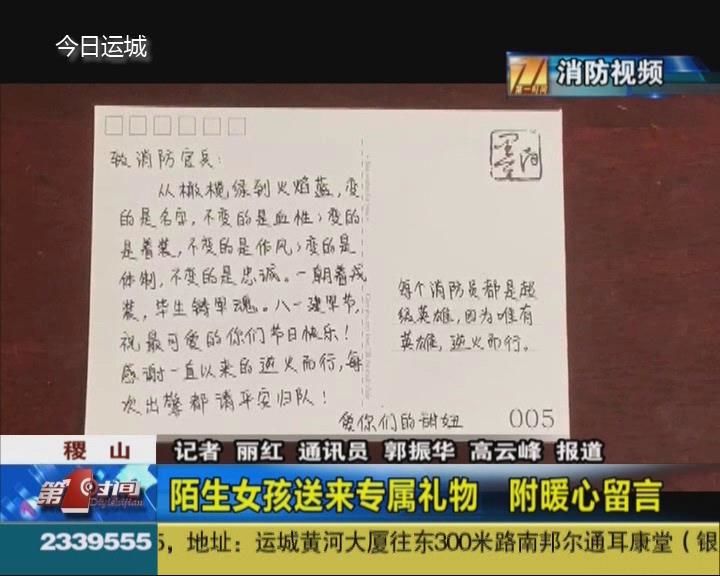 今日运城
消防视频
致消防官兵：
从橄榄绿到火焰蓝，变
的是名字，不变的是血性；变的
是着装，不变的是作风；变的是
体制，不变的是忠诚。一朝着戎
装，毕生铸军魂。八一建军节，
祝最可爱的你们节日快乐！
感谢一直以来的逆火而行，每
次出警都请平安归队！
爱你们的甜妞
每个消防员都是超
级英雄，因为唯有
英雄，逆火而行。
005
稷山
记者 丽红 通讯员 郭振华 高云峰 报道
第1时间
陌生女孩送来专属礼物 附暖心留言
2339555
5，地址：运城黄河大厦往东300米路南邦尔通耳康堂（银